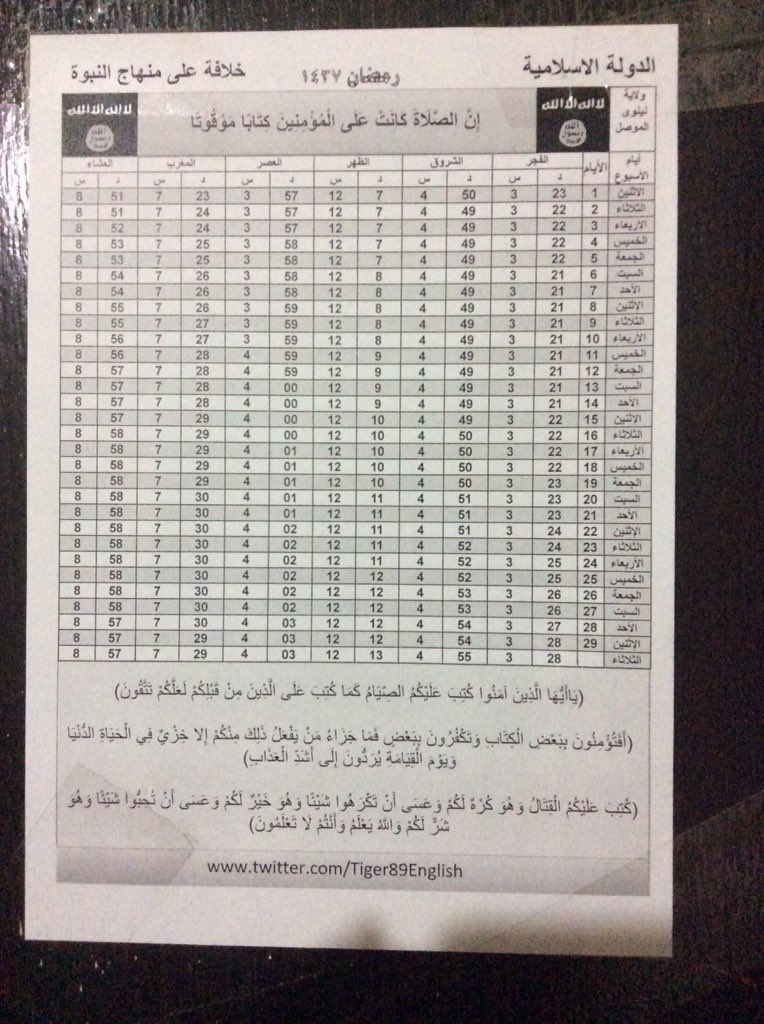 الدولة الاسلامية رمضان ١٤٣٧ خلافة على منهاج النبوة
ولاية نينوى الموصل
لا اله الا الله
الله رسول محمد
إِنَّ الصَّلَاةَ كَانَتْ عَلَى الْمُؤْمِنِينَ كِتَابًا مَوْقُوتًا
لا اله الا الله
الله رسول محمد
أيام الأسبوع الأيام الفجر الشروق الظهر العصر المغرب العشاء
د س د س د س د س د س د س
الاثنين 1 23 3 50 4 7 12 57 3 23 7 51 8
الثلاثاء 2 22 3 49 4 7 12 57 3 24 7 51 8
الأربعاء 3 22 3 49 4 7 12 57 3 24 7 52 8
الخميس 4 22 3 49 4 7 12 58 3 25 7 53 8
الجمعة 5 22 3 49 4 7 12 58 3 25 7 53 8
السبت 6 21 3 49 4 8 12 58 3 26 7 54 8
الأحد 7 21 3 49 4 8 12 58 3 26 7 54 8
الأثنين 8 21 3 49 4 8 12 59 3 26 7 55 8
الثلاثاء 9 21 3 49 4 8 12 59 3 27 7 55 8
الأربعاء 10 21 3 49 4 8 12 59 3 27 7 56 8
الخميس 11 21 3 49 4 9 12 59 4 28 7 56 8
الجمعة 12 21 3 49 4 9 12 59 4 28 7 57 8
السبت 13 21 3 49 4 9 12 00 4 28 7 57 8
الأحد 14 21 3 49 4 9 12 00 4 28 7 57 8
الاثنين 15 22 3 49 4 10 12 00 4 29 7 57 8
الثلاثاء 16 22 3 50 4 10 12 00 4 29 7 58 8
الأربعاء 17 22 3 50 4 10 12 01 4 29 7 58 8
الخميس 18 22 3 50 4 10 12 01 4 29 7 58 8
الجمعة 19 23 3 50 4 10 12 01 4 29 7 58 8
السبت 20 23 3 51 4 11 12 01 4 30 7 58 8
الأحد 21 23 3 51 4 11 12 01 4 30 7 58 8
الإثنين 22 24 3 51 4 11 12 02 4 30 7 58 8
الثلاثاء 23 24 3 52 4 11 12 02 4 30 7 58 8
الأربعاء 24 25 3 52 4 11 12 02 4 30 7 58 8
الخميس 25 25 3 52 4 12 12 02 4 30 7 58 8
الجمعة 26 26 3 53 4 12 12 02 4 30 7 58 8
السبت 27 26 3 53 4 12 12 02 4 30 7 58 8
الأحد 28 27 3 54 4 12 12 03 4 30 7 57 8
الإثنين 29 28 3 54 4 12 12 03 4 29 7 57 8
الثلاثاء 28 3 55 4 13 12 03 4 29 7 57 8
(يَاأَيُّهَا الَّذِينَ آمَنُوا كُتِبَ عَلَيْكُمُ الصِّيَامُ كَمَا كُتِبَ عَلَى الَّذِينَ مِنْ قَبْلِكُمْ لَعَلَّكُمْ تَتَّقُونَ)
(أَفَتُؤْمِنُونَ بِبَعْضِ الْكِتَابِ وَتَكْفُرُونَ بِبَعْضٍ فَمَا جَزَاءُ مَنْ يَفْعَلُ ذَلِكَ مِنْكُمْ إِلا خِزْيٌ فِي الْحَيَاةِ الدُّنْيَا
وَيَوْمَ الْقِيَامَةِ يُرَدُّونَ إِلَى أَشَدِّ الْعَذَابِ)
(كُتِبَ عَلَيْكُمُ الْقِتَالُ وَهُوَ كُرْهٌ لَكُمْ وَعَسَى أَنْ تَكْرَهُوا شَيْئًا وَهُوَ خَيْرٌ لَكُمْ وَعَسَى أَنْ تُحِبُّوا شَيْئًا وَهُوَ
شَرٌّ لَكُمْ وَاللَّهُ يَعْلَمُ وَأَنْتُمْ لَا تَعْلَمُونَ)
www.twitter.com/Tiger89English